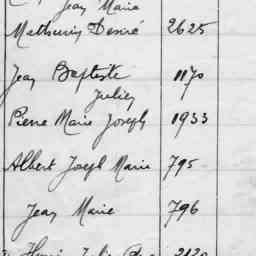 Jean Marie
Mathurin Désiré 2625
Jean Baptiste 1170
Julien
Pierre Marie Joseph 1933
Albert Joseph Marie 795
Jean Marie 796
Henri 2120